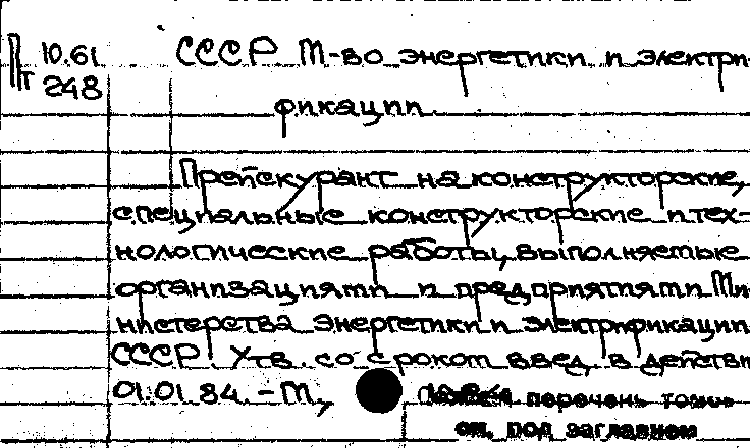 Пт 10.61 СССР М-во энергетики и электри-
248
фикации.
Прейскурант на конструкторские,
специальные конструкторские и тех-
нологические работы, выполняемые
организациями и предприятиями Ми-
нистерства энергетики и электрификации
СССР. Утв. со сроком введ. в действи
01.01.84. - М., перечень томов
см. под заглавием